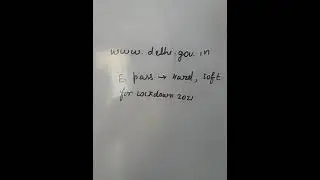 www.delhi.gov.in
E pass → Hard, soft
for Lockdown 2021